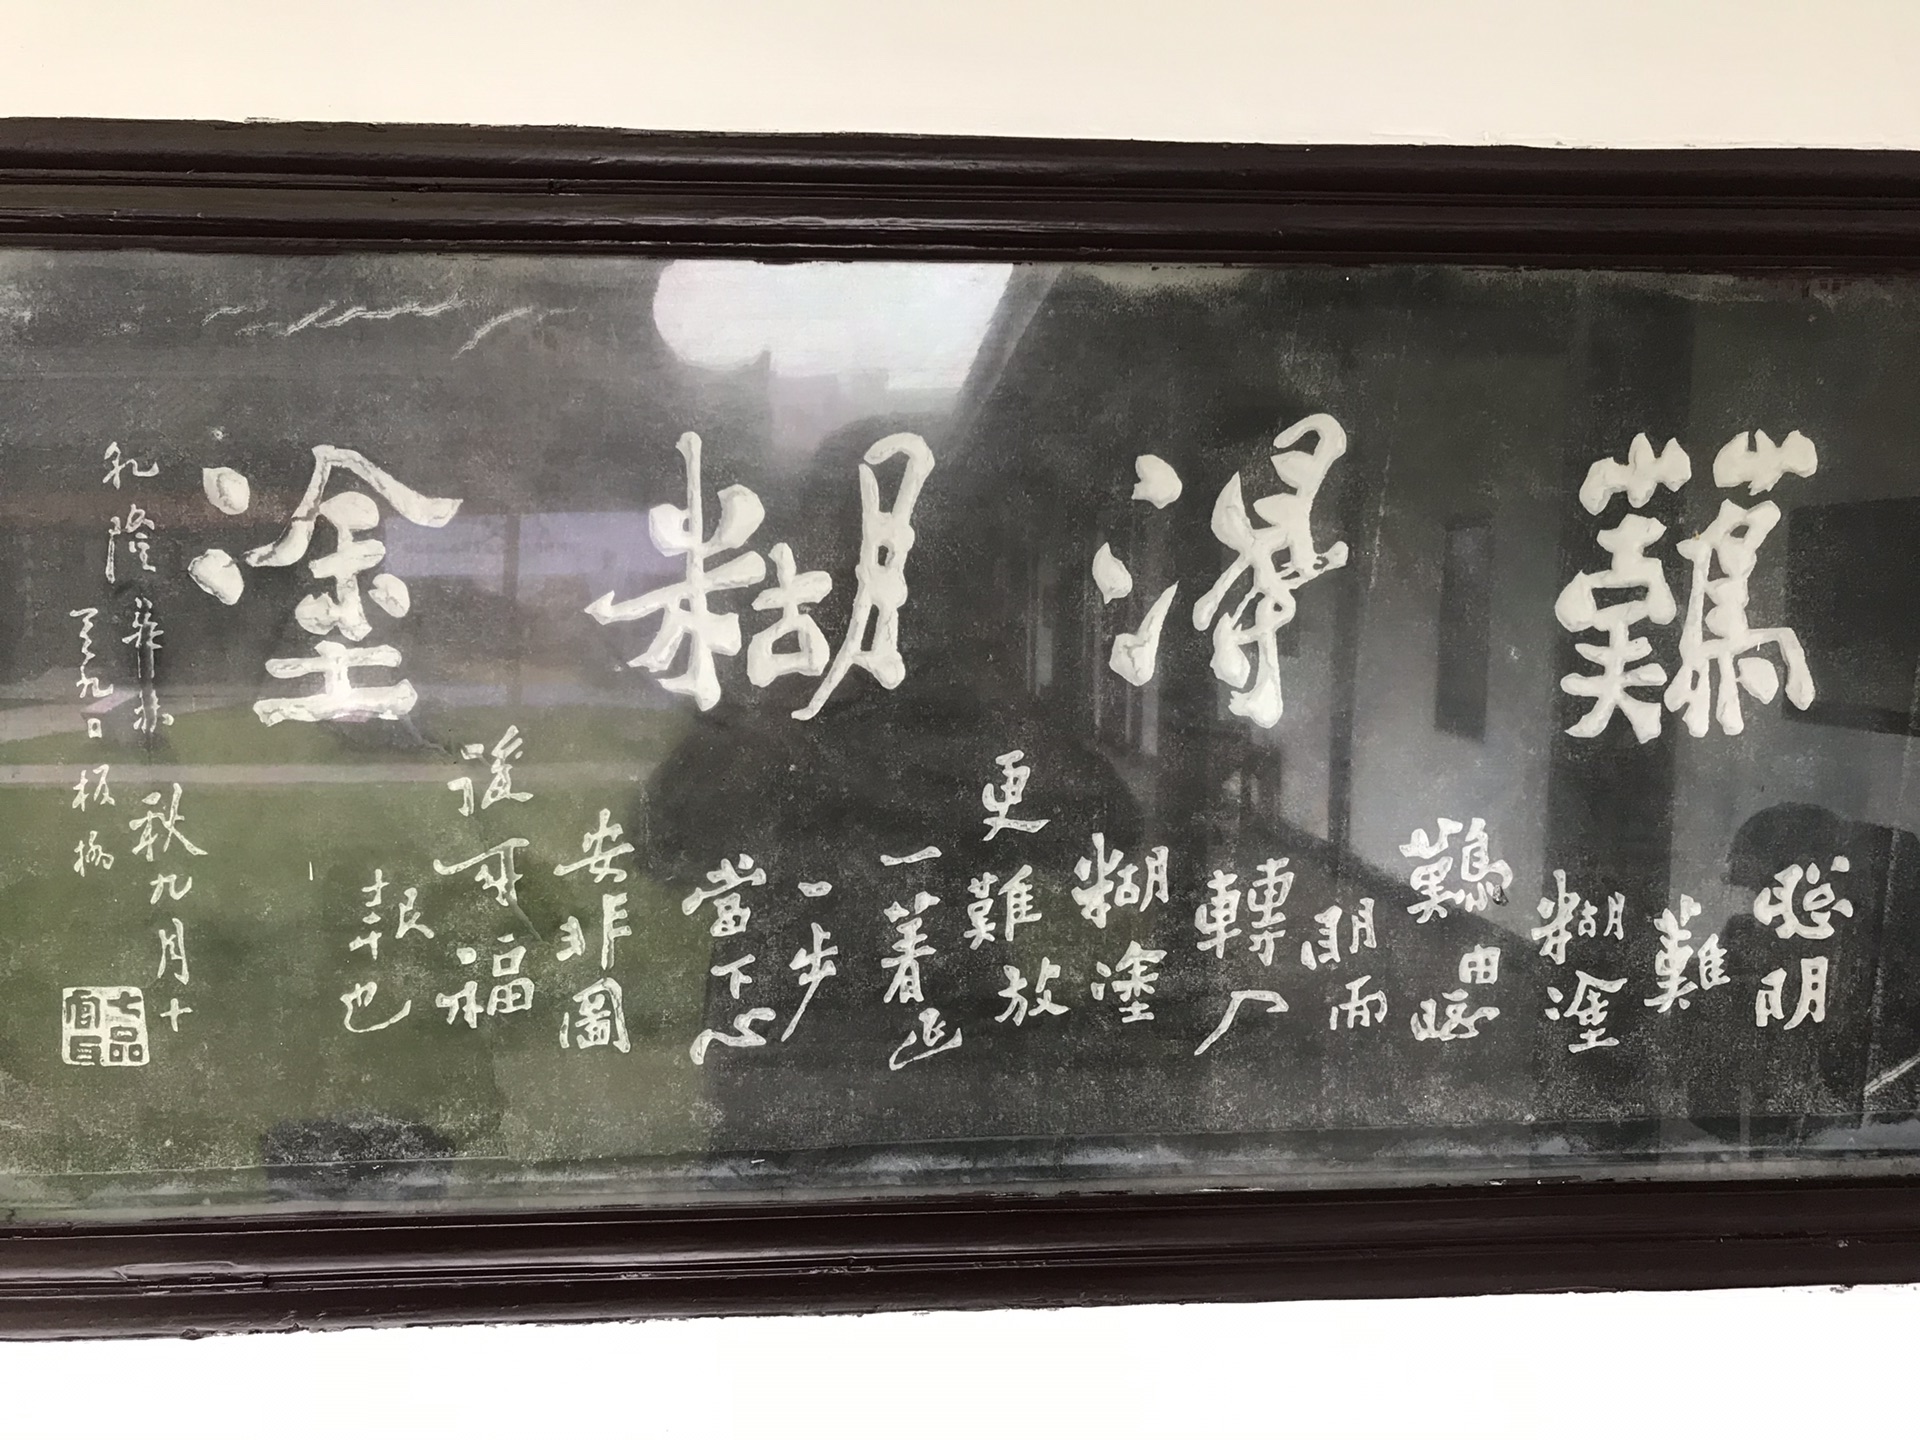 難得糊塗
聰明
難
糊塗
難由聰
明而
轉入
糊塗
更難放
一着退
一步
當下心
安非圖
後来福
報也
乾隆辛未秋九月十
有九日板橋
七品官耳